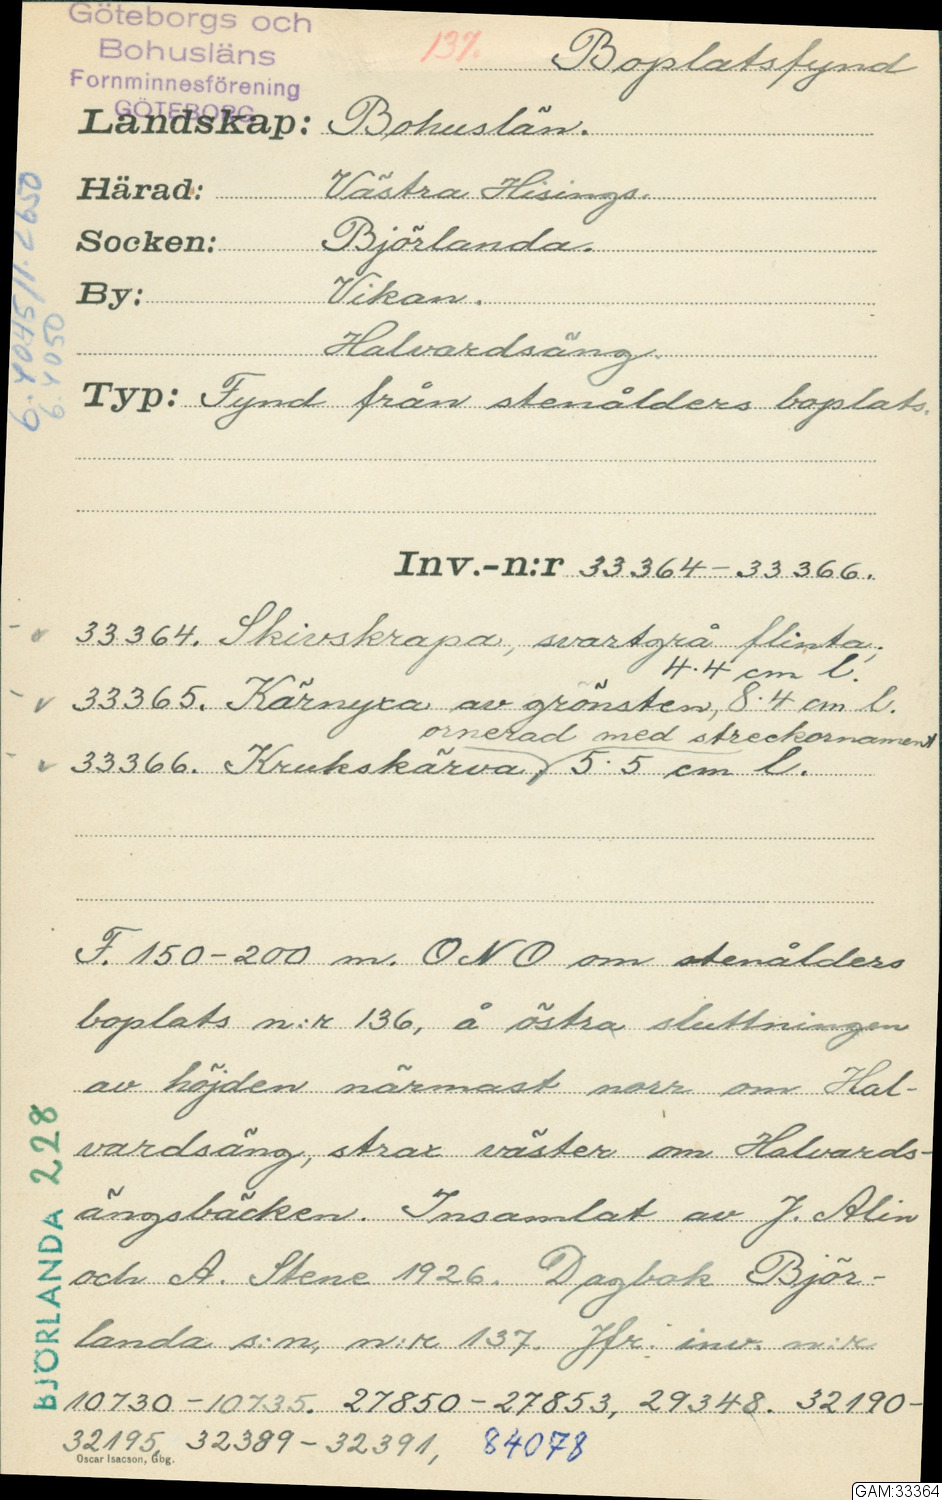 Göteborgs och
Bohusläns
Fornminnesförening
GÖTEBORG
137.
Boplatsfynd
Landskap: Bohuslän.
Härad: Västra Hisings.
Socken: Björlanda.
By: Vikan.
Halvardsäng.
Typ: Fynd från stenålders boplats.
Inv.-n:r 33364-33366.
33364. Skivskrapa, svartgrå flinta,
4.4 cm l.
33365. Kärnyxa av grönsten, 8.4 cm l.
ornerad med streckornament
33366. Krukskärva, 5.5 cm l.
F. 150-200 m. ONO om stenålders
boplats n:r 136, å östra sluttningen
av höjden närmast norr om Hal-
vardsäng, strax väster om Halvards-
ängsbäcken. Insamlat av J. Alin
och A. Stene 1926. Dagbok Björ-
landa s:n, n:r 137. Jfr. inv. n:r
10730-10735. 27850-27853, 29348. 32190-
32195, 32389-32391, 84078
Oscar Isacson, Gbg.
BJÖRLANDA 228
GAM:33364